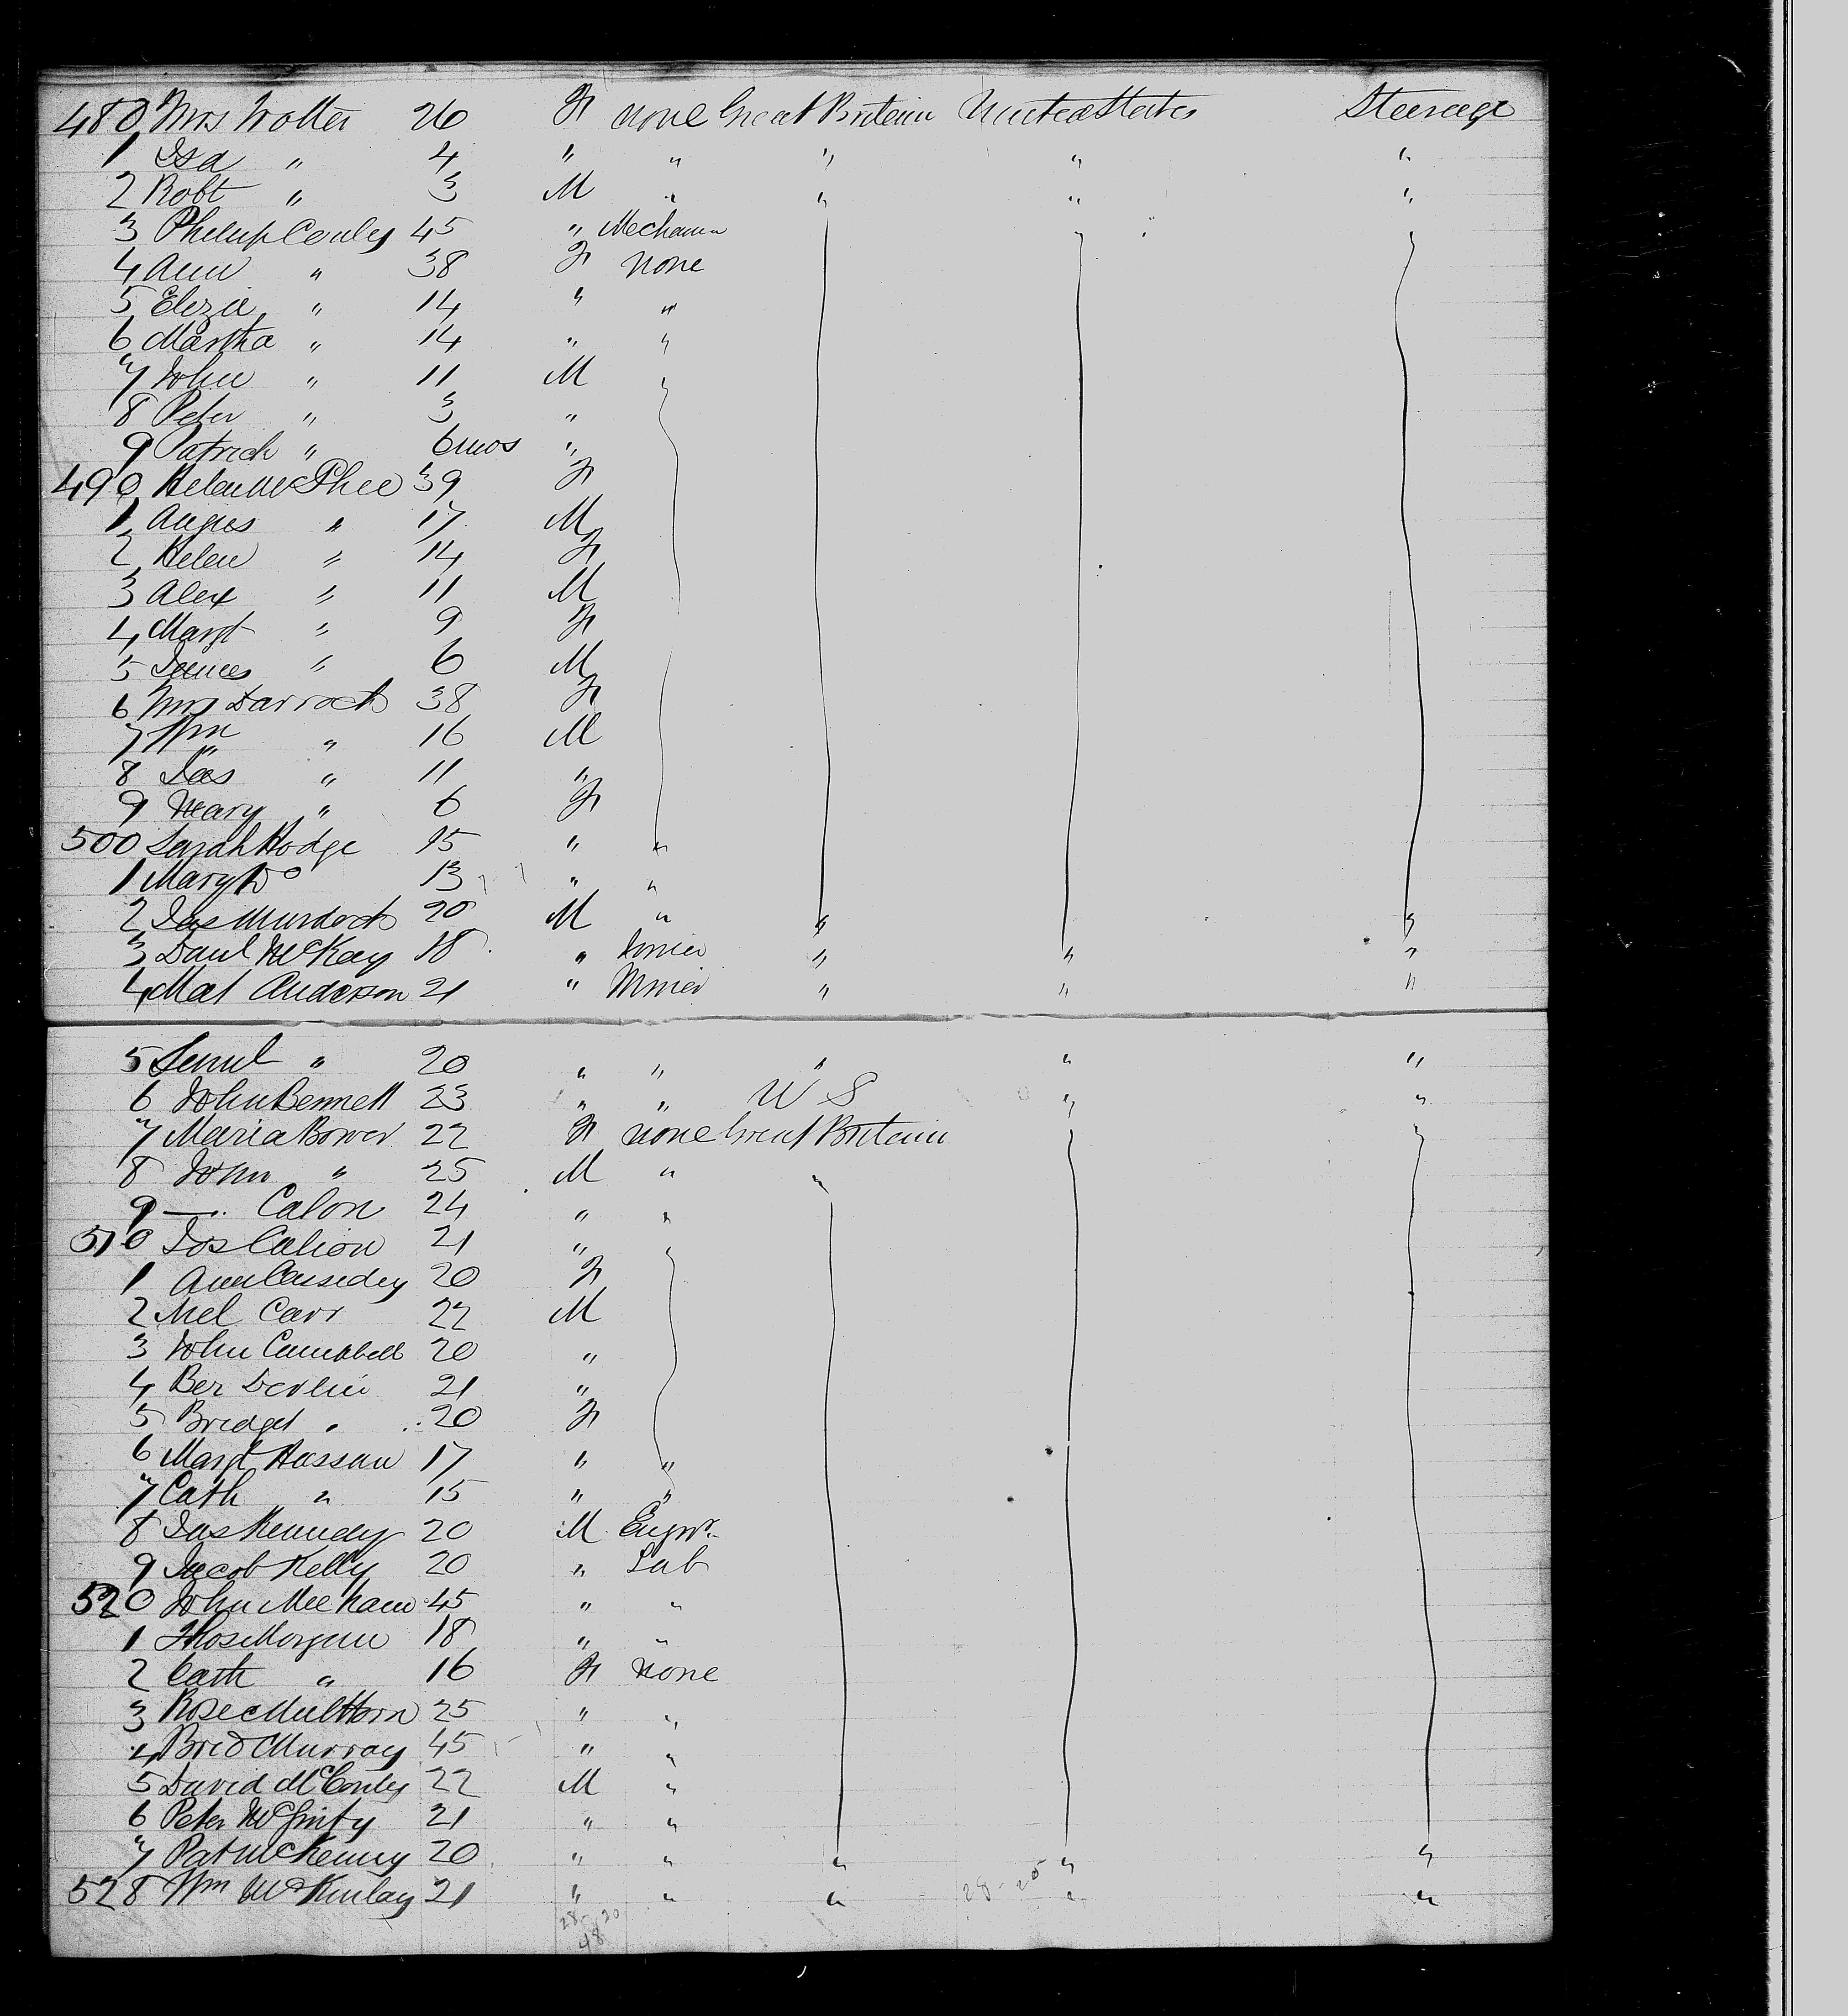 480 Mrs Trotter 26 F none Great Britain United States Steerage
1 Isa " 4 " " " " "
2 Robt " 3 M " " " "
3 Philip Conley 45 " Mechanic
4 Ann " 38 F none
5 Eliza " 14 " "
6 Martha " 14 " "
7 John " 11 M "
8 Peter " 3 "
9 Patrick " 6 mos "
490 Helen McPhee 39 F
1 Angus " 17 M
2 Helen " 14 F
3 Alex " 11 M
4 Margt " 9 F
5 James " 6 M
6 Mrs Darroch 38 F
7 Wm " 16 M
8 Jas " 11 "
9 Mary " 6 F
500 Sarah Hodge 15 " "
1 Mary Do 13 " "
2 Jas Murdoch 20 M " " "
3 Danl McKay 18 " " " "
4 Mat Anderson 21 " Miner " " "
5 Saml " 20 " " " " "
6 John Bennett 23 " " U S " "
7 Maria Bower 22 F none Great Britain " "
8 John " 25 M " "
9 —. Calon 24 " "
510 Jos Calion 21 " "
1 Ann Cassidey 20 F
2 Mcl Carr 22 M
3 John Campbell 20 "
4 Ber Devlin 21 "
5 Bridget " 20 F
6 Margt Hassan 17 " "
7 Cath " 15 " "
8 Jas Kennedy 20 M Engr.
9 Jacob Kelly 20 " Lab
520 John Meehan 45 " "
1 Thos Morgan 18 " "
2 Cath " 16 F none
3 Rose Multhorn 25 " "
4 Brid Murray 45 " "
5 David McConley 22 M "
6 Peter McGinty 21 " "
7 Pat McKenny 20 " " " " "
528 Wm McKinlay 21 " " " " "
28-20
28-20
48